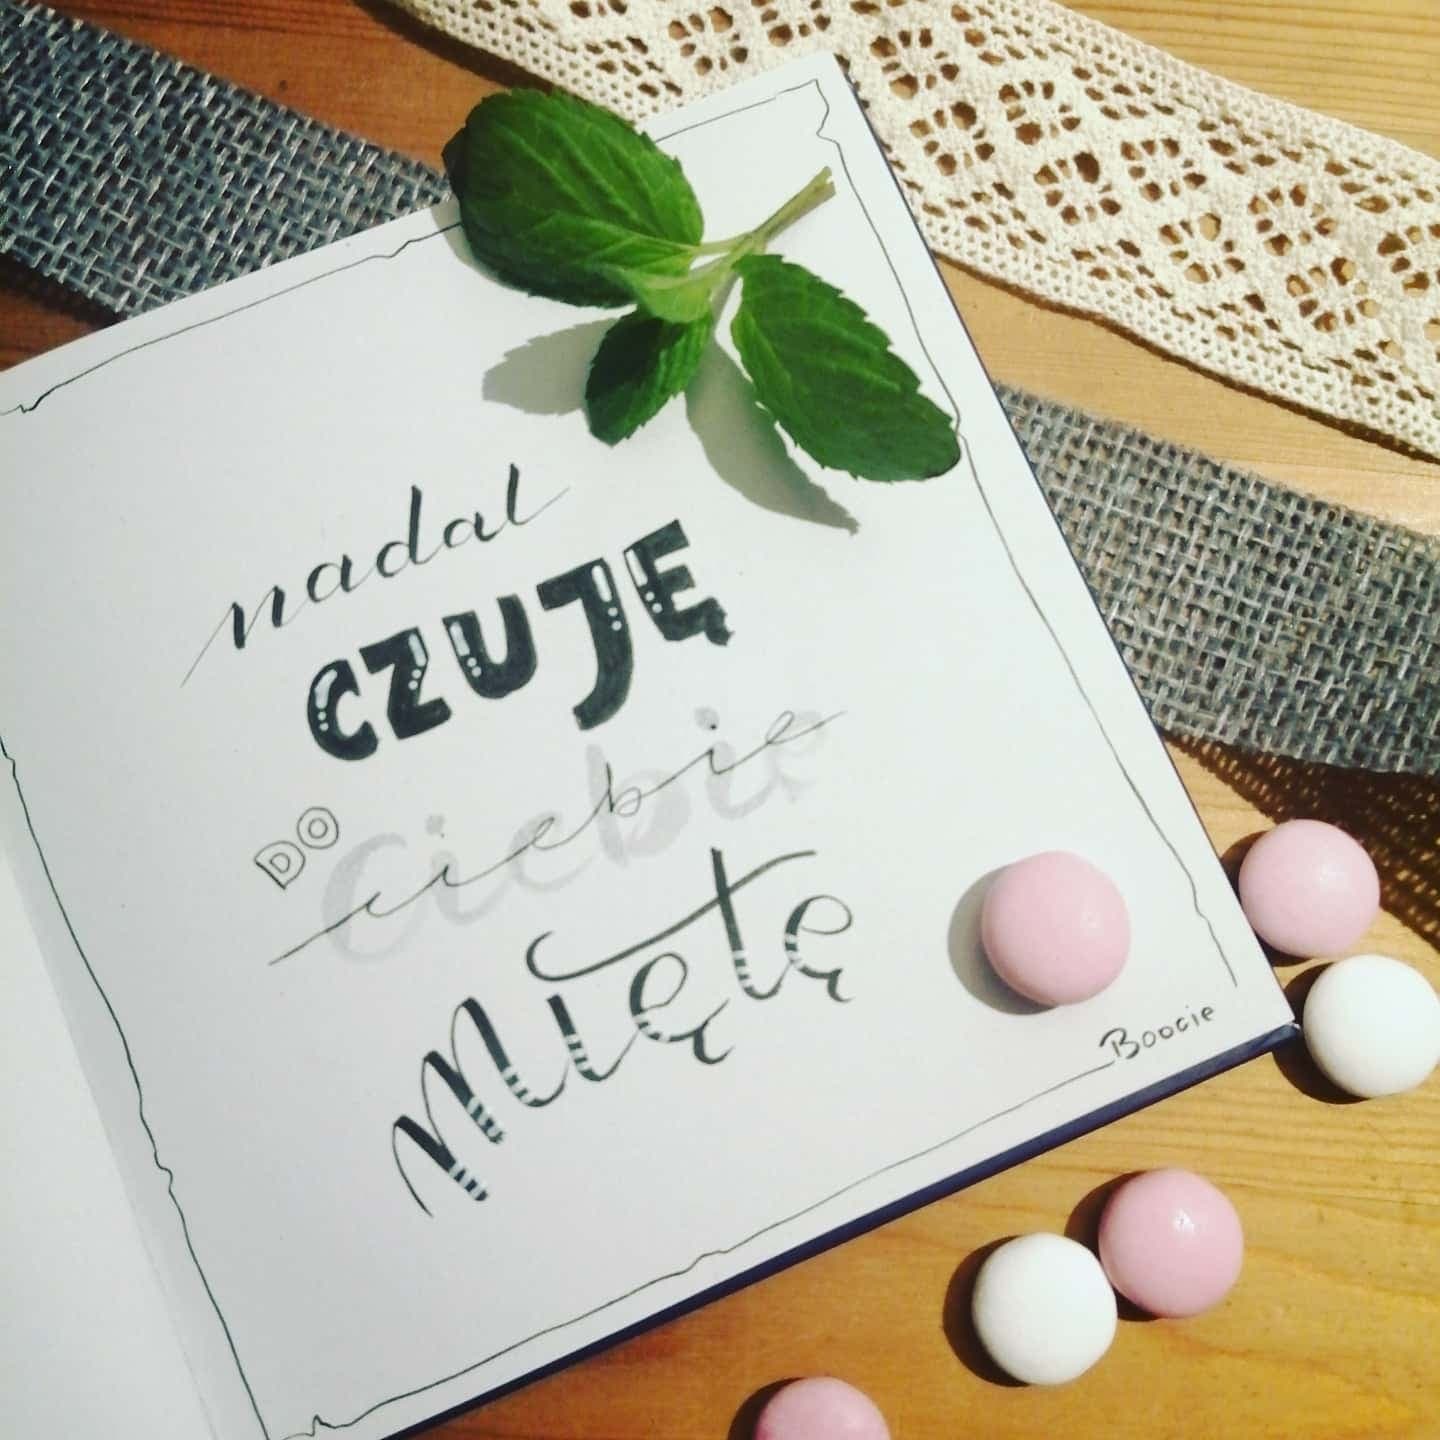 nadal
CZUJĘ
DO ciebie
Miętę
Boocie